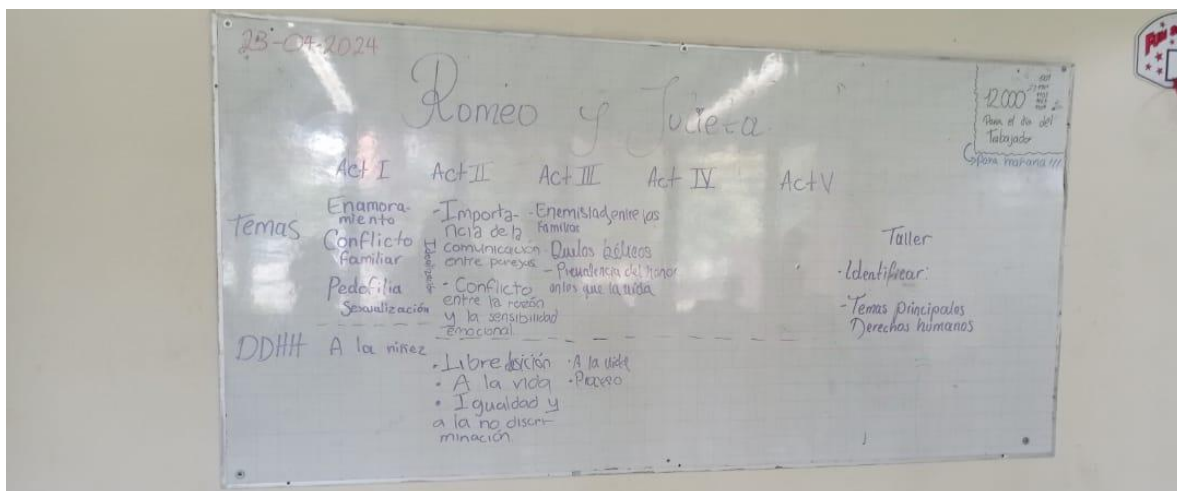 23-04-2024
Romeo y Julieta
12.000
Para el dia del
Tabajador
Para mañana !!!
Act I Act II Act III Act IV Act V
Temas
Enamora-
miento
Conflicto
familiar
Pedofilia
Sexualización
-Importa-
ncia de la
comunicación
entre parejas
- Conflicto
entre la razón
y la sensibilidad
emocional
- Enemistad entre las
Familias
- Duelos bélicos
- Prevalencia del honor
antes que la vida
Taller
-Identificar:
-Temas principales
Derechos humanos
DDHH
A la niñez
· A la vida
· Igualdad y
a la no discri-
minación
· A la vida
· Proceso